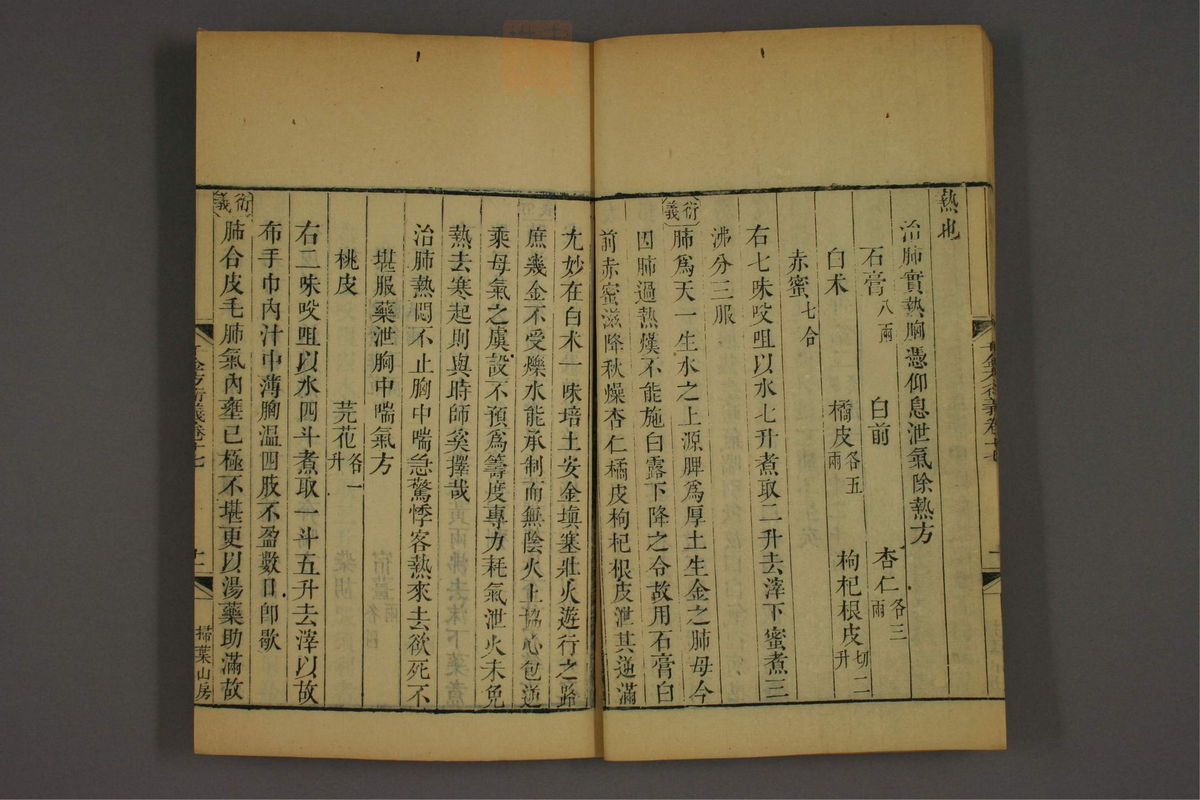 熱也
治肺實熱胸憑仰息泄氣除熱方
石膏八兩 白前 杏仁各三兩
白术 橘皮各五兩 枸杞根皮切二升
赤蜜七合
右七味㕮咀以水七升煮取二升去滓下蜜煮三
沸分三服
衍義
肺爲天一生水之上源脾爲厚土生金之肺母今
因肺過熱熯不能施白露下降之令故用石膏白
前赤蜜滋降秋燥杏仁橘皮枸杞根皮泄其逆滿
尢妙在白术一味培土安金塡塞壯火遊行之路
庶幾金不受爍水能承制而無陰火上協心包逆
乘母氣之虞設不預爲籌度專力耗氣泄火未免
熱去寒起則與時師奚擇哉
治肺熱悶不止胸中喘急驚悸客熱來去欲死不
堪服藥泄胸中喘氣方
桃皮 芫花各一升
右二味㕮咀以水四斗煮取一斗五升去滓以故
布手巾內汁中薄胸溫四肢不盈數日卽歇
衍義
肺合皮毛肺氣內壅已極不堪更以湯藥助滿故
千金方衍義卷十七
十一
掃葉山房